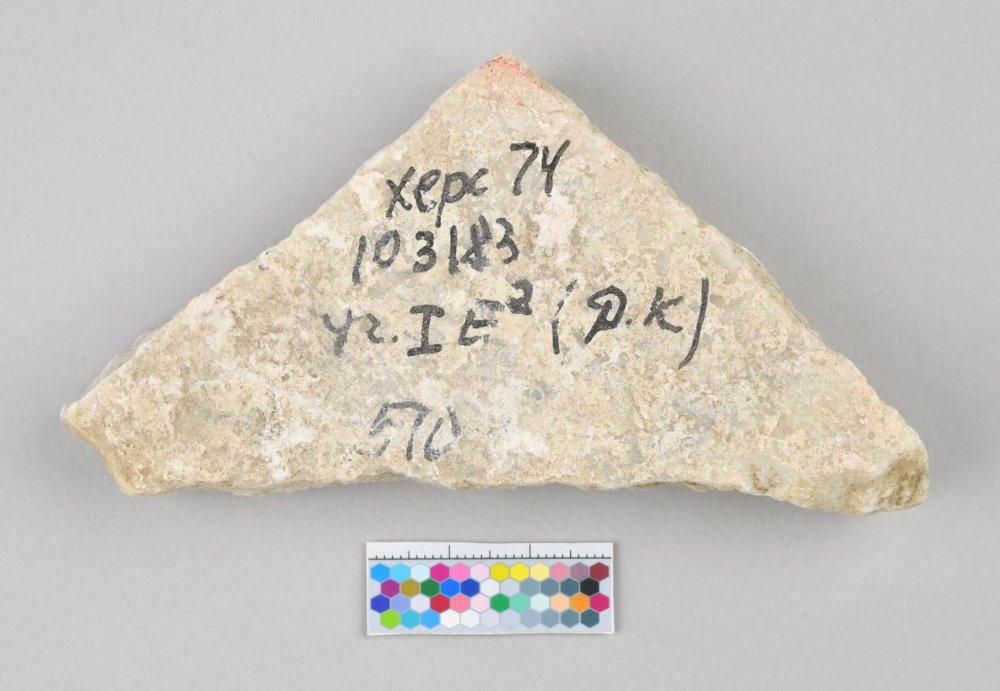 Херс 74
103183
уг. I E² (Д.К)
570